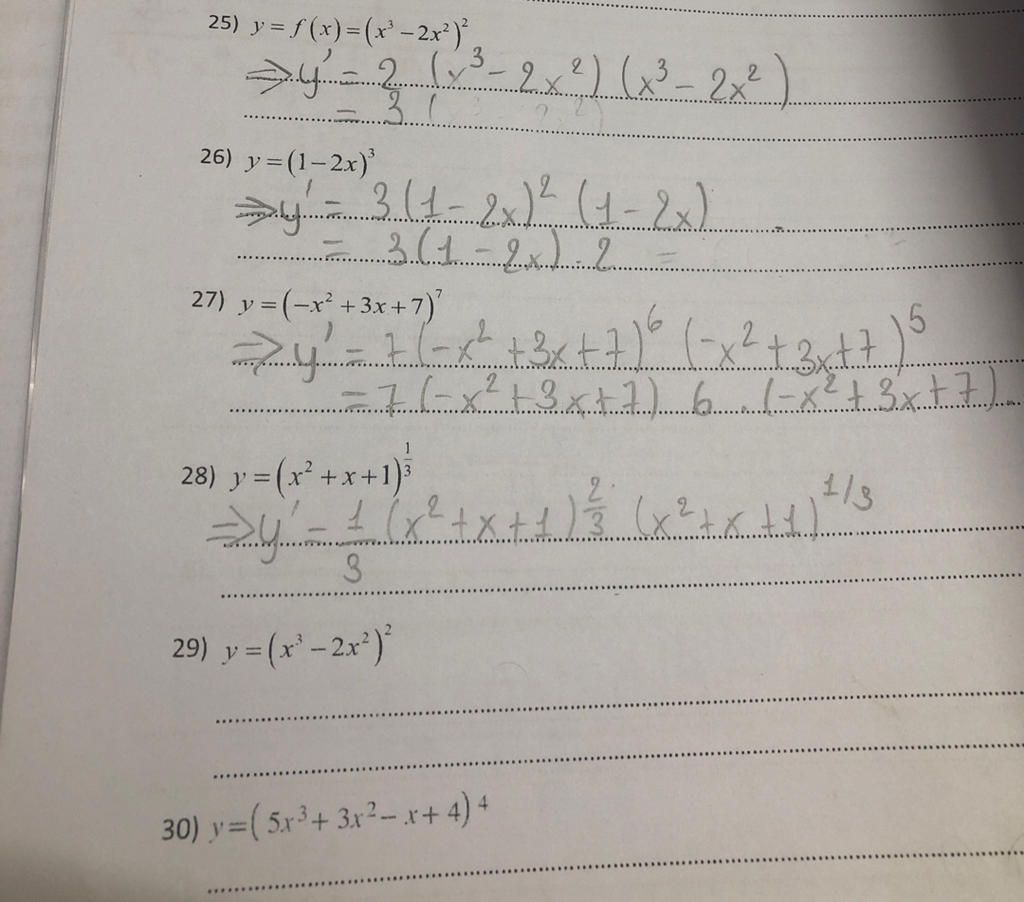 25) y = f(x) = (x³ − 2x²)²
⇒ y' = 2 (x³ − 2x²) (x³ − 2x²)
= 3 (
26) y = (1 − 2x)³
⇒ y' = 3 (1 − 2x)² (1 − 2x)
= 3 (1 − 2x) . 2 =
27) y = (−x² + 3x + 7)⁷
⇒ y' = 7 (−x² + 3x + 7)⁶ (−x² + 3x + 7)⁵
= 7 (−x² + 3x + 7) 6 . (−x² + 3x + 7)
28) y = (x² + x + 1)^(1/3)
⇒ y' = 1/3 (x² + x + 1)^(2/3) (x² + x + 1)^(1/3)
29) y = (x³ − 2x²)²
30) y = (5x³ + 3x² − x + 4)⁴